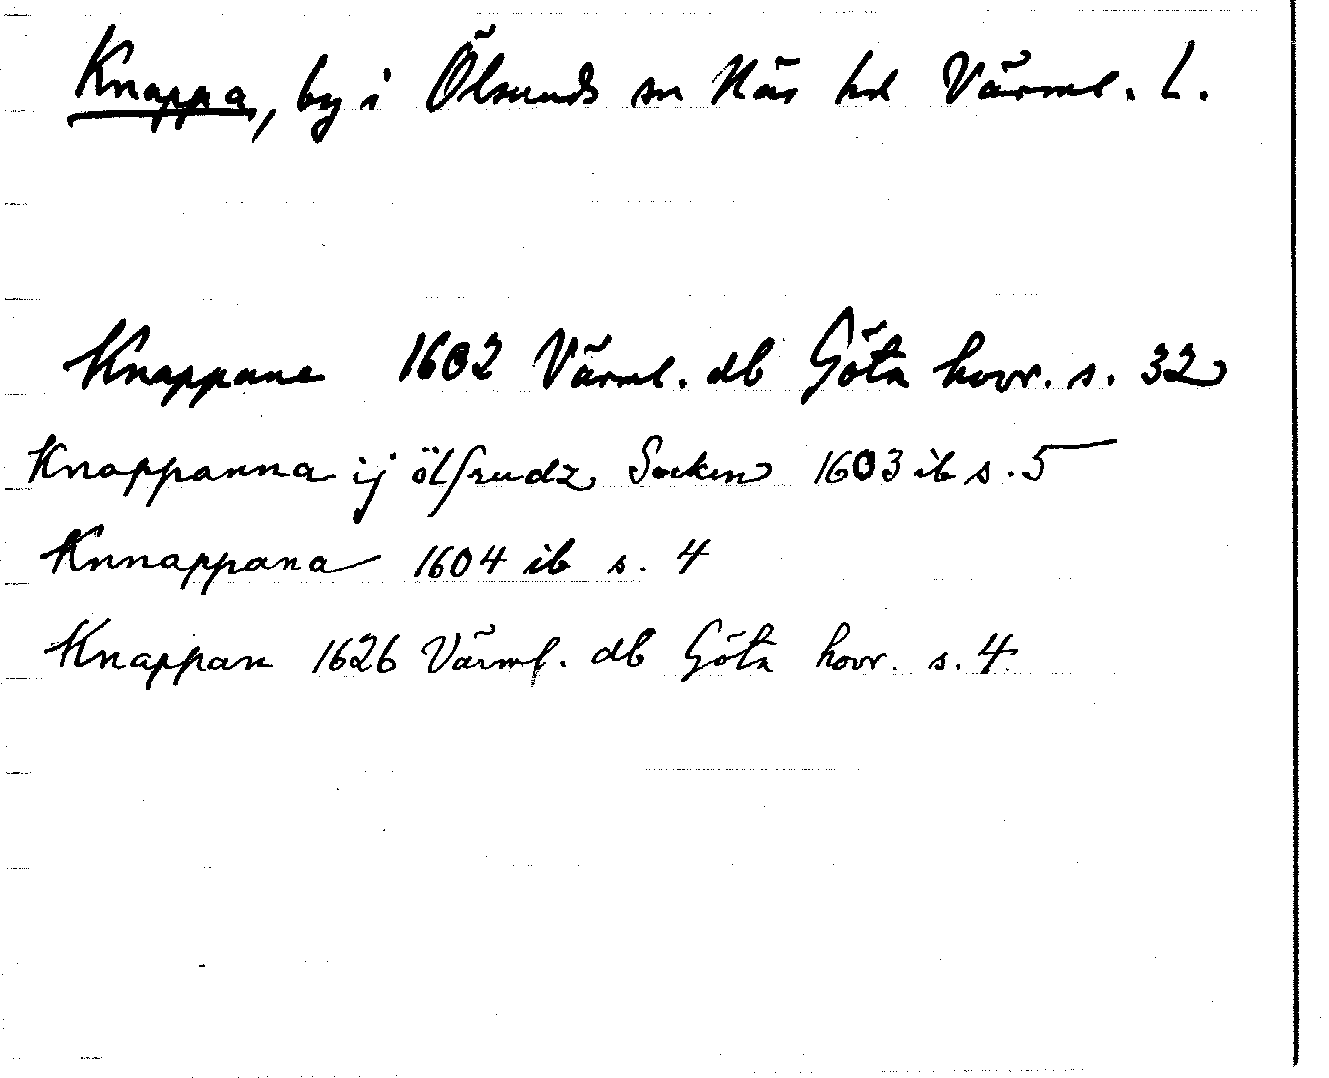 Knappa, by i Ölseruds sn Näs hd Värml. L.
Knappane 1602 Värml. db Göta hovr. s. 32
Knappanna ij ölsrudz Socken 1603 ib s. 5
Knnappana 1604 ib s. 4
Knappan 1626 Värml. db Göta hovr. s. 4